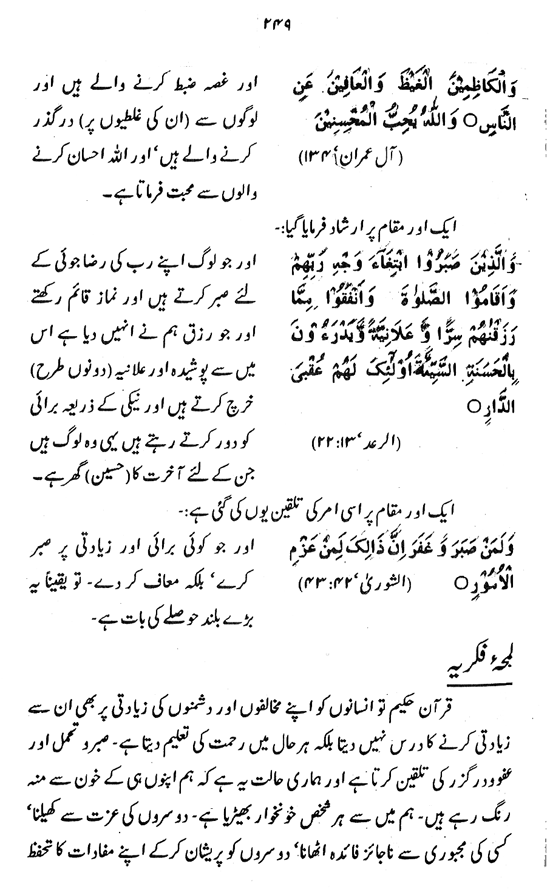 ۲۴۹
وَالْكَاظِمِيْنَ الْغَيْظَ وَالْعَافِيْنَ عَنِ
النَّاسِ ○ وَاللّٰهُ يُحِبُّ الْمُحْسِنِيْنَ
(آل عمران ۱۳۴)
اور غصہ ضبط کرنے والے ہیں اور
لوگوں سے (ان کی غلطیوں پر) درگذر
کرنے والے ہیں‘ اور اللہ احسان کرنے
والوں سے محبت فرماتا ہے۔
ایک اور مقام پر ارشاد فرمایا گیا:-
وَالَّذِيْنَ صَبَرُوا ابْتِغَآءَ وَجْهِ رَبِّهِمْ
وَاَقَامُوْا الصَّلٰوةَ وَاَنْفَقُوْا مِمَّا
رَزَقْنٰهُمْ سِرًّا وَّ عَلَانِيَةً وَّيَدْرَءُوْنَ
بِالْحَسَنَةِ السَّيِّئَةَ اُولٰٓئِكَ لَهُمْ عُقْبَى
الدَّارِ ○
(الرعد‘ ۲۲:۱۳)
اور جو لوگ اپنے رب کی رضا جوئی کے
لئے صبر کرتے ہیں اور نماز قائم رکھتے
اور جو رزق ہم نے انہیں دیا ہے اس
میں سے پوشیدہ اور علانیہ (دونوں طرح)
خرچ کرتے ہیں اور نیکی کے ذریعہ برائی
کو دور کرتے رہتے ہیں یہی وہ لوگ ہیں
جن کے لئے آخرت کا (حسین) گھر ہے۔
ایک اور مقام پر اسی امر کی تلقین یوں کی گئی ہے:-
وَلَمَنْ صَبَرَ وَ غَفَرَ اِنَّ ذَالِكَ لَمِنْ عَزْمِ
الْاُمُوْرِ ○ (الشوریٰ‘ ۴۳:۴۲)
اور جو کوئی برائی اور زیادتی پر صبر
کرے‘ بلکہ معاف کر دے۔ تو یقیناً یہ
بڑے بلند حوصلے کی بات ہے۔
لمحۂ فکریہ
قرآن حکیم تو انسانوں کو اپنے مخالفوں اور دشمنوں کی زیادتی پر بھی ان سے
زیادتی کرنے کا درس نہیں دیتا بلکہ ہر حال میں رحمت کی تعلیم دیتا ہے۔ صبر و تحمل اور
عفو و درگزر کی تلقین کرتا ہے اور ہماری حالت یہ ہے کہ ہم اپنوں ہی کے خون سے منہ
رنگ رہے ہیں۔ ہم میں سے ہر شخص خونخوار بھیڑیا ہے۔ دوسروں کی عزت سے کھیلنا‘
کسی کی مجبوری سے ناجائز فائدہ اٹھانا‘ دوسروں کو پریشان کرکے اپنے مفادات کا تحفظ